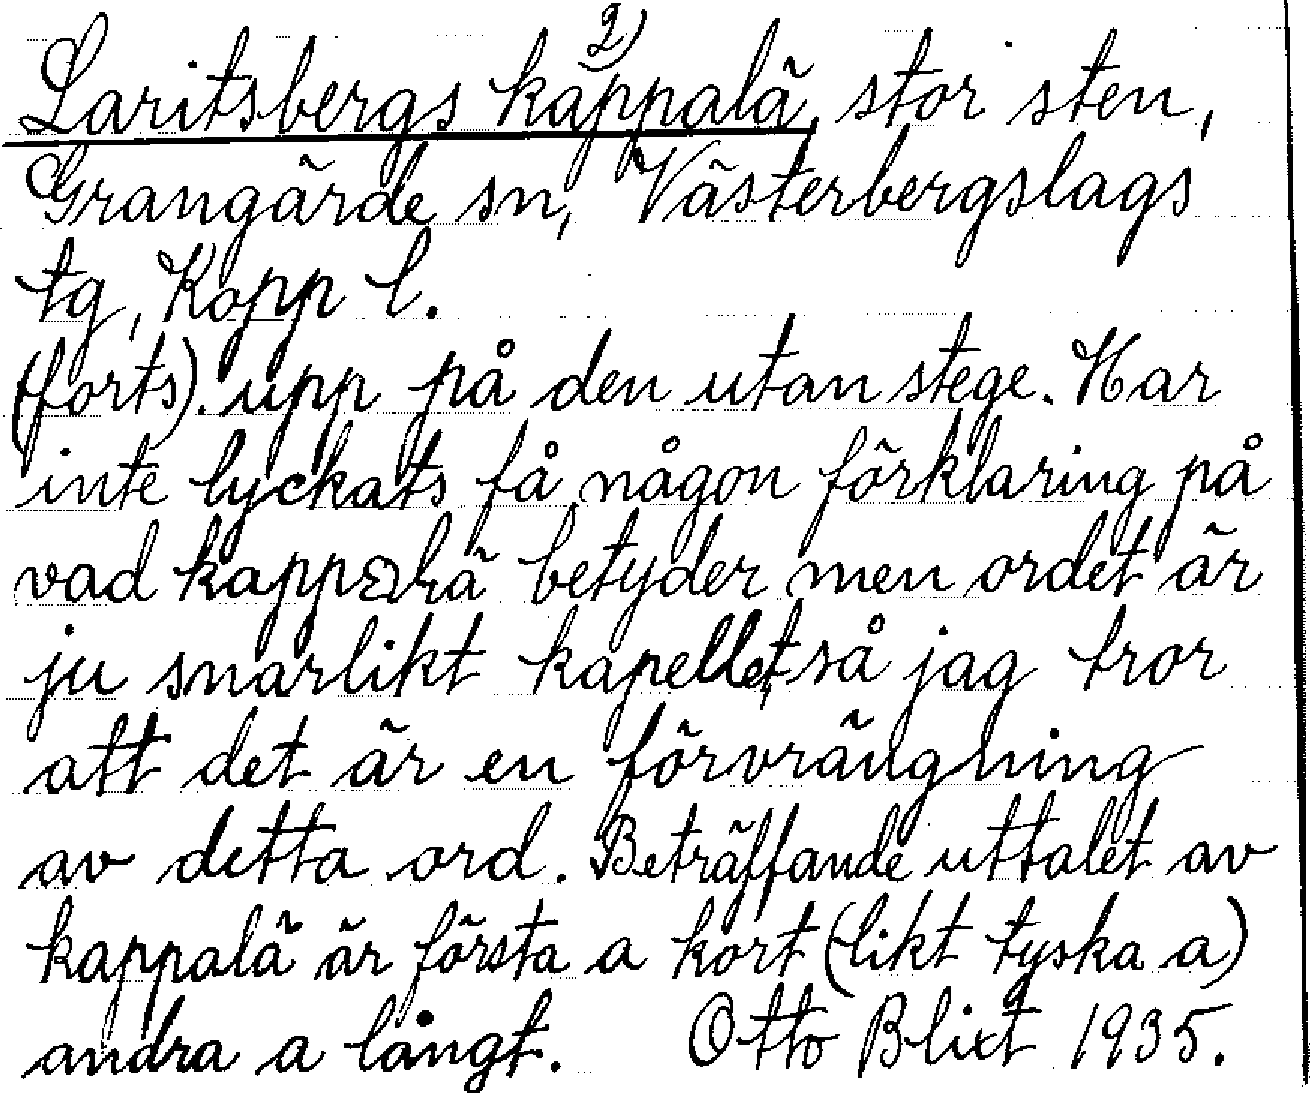 2)
Laritsbergs kappalä, stor sten,
Grangärde sn, Västerbergslags
tg, Kopp l.
(forts). upp på den utan stege. Har
inte lyckats få någon förklaring på
vad kappalä betyder men ordet är
ju snarlikt kapellet, så jag tror
att det är en förvrängning
av detta ord. Beträffande uttalet av
kappalä är första a kort (likt tyska a)
andra a långt. Otto Blixt 1935.